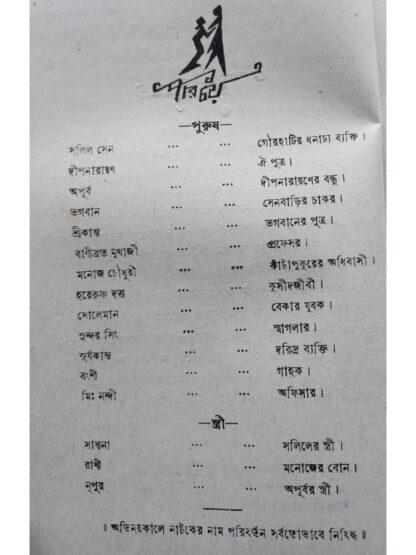 পরিচয়
—পুরুষ—
সলিল সেন ... ... গৌরহাটির ধনাঢ্য ব্যক্তি।
দীপনারায়ণ ... ... ঐ পুত্র।
অপূর্ব ... ... দীপনারায়ণের বন্ধু।
ভগবান ... ... সেনবাড়ির চাকর।
শ্রীকান্ত ... ... ভগবানের পুত্র।
বাণীব্রত মুখার্জী ... ... প্রফেসর।
মনোজ চৌধুরী ... ... কাঁটাপুকুরের অধিবাসী।
হরেকৃষ্ণ দত্ত ... ... কুসীদজীবী।
সোলেমান ... ... বেকার যুবক।
সুন্দর সিং ... ... স্মাগলার।
সূর্যকান্ত ... ... দরিদ্র ব্যক্তি।
বংশী ... ... গাহক।
মিঃ নন্দী ... ... অফিসার।
—স্ত্রী—
সান্ত্বনা ... ... সলিলের স্ত্রী।
রাখী ... ... মনোজের বোন।
নূপুর ... ... অপূর্বর স্ত্রী।
॥ অভিনয়কালে নাটকের নাম পরিবর্তন সর্বতোভাবে নিষিদ্ধ ॥